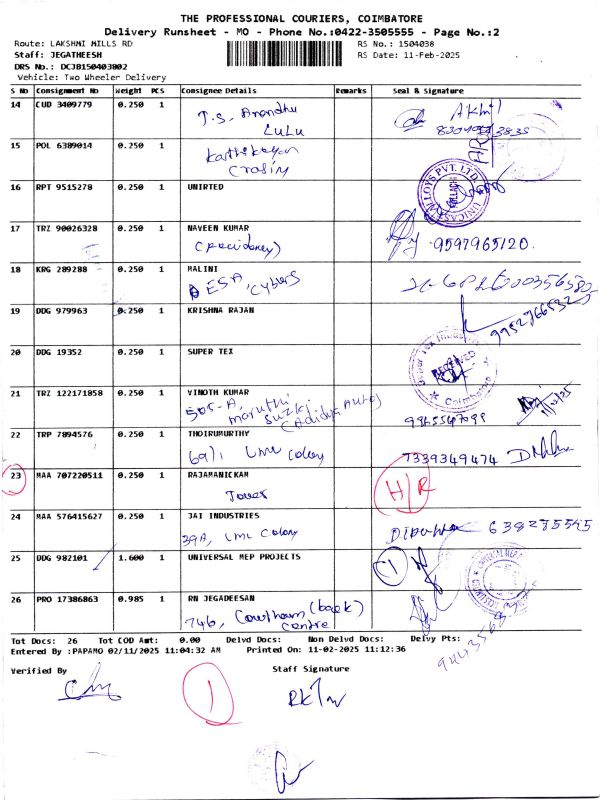 THE PROFESSIONAL COURIERS, COIMBATORE
Delivery Runsheet - MO - Phone No.:0422-3505555 - Page No.:2
Route: LAKSHMI MILLS RD RS No.: 1504038
Staff: JEGATHEESH RS Date: 11-Feb-2025
DRS No.: DCJB150403802
Vehicle: Two Wheeler Delivery
S No Consignment No Weight PCS Consignee Details Remarks Seal & Signature
14 CUD 3409779 0.250 1 T.S. Anandhu Akhil
LuLu
15 POL 6389014 0.250 1 Karthikeyan
Crosin
16 RPT 9515278 0.250 1 UNIRTED
17 TRZ 90026328 0.250 1 NAVEEN KUMAR
9597965120.
18 KRG 289288 0.250 1 MALINI
ESA, Cybers
19 DDG 979963 0.250 1 KRISHNA RAJAN
20 DDG 19352 0.250 1 SUPER TEX
Coimbatore
21 TRZ 122171858 0.250 1 VINOTH KUMAR
505-A, maruthi
suzki
(Adidya Auto)
22 TRP 7894576 0.250 1 THOIRUMURTHY
69/1 LML Colony 7339349474
23 MAA 707220511 0.250 1 RAJAMANICKAM H/R
Tower
24 MAA 576415627 0.250 1 JAI INDUSTRIES
39A, LML Colony
25 DDG 982101 1.600 1 UNIVERSAL MEP PROJECTS 1
26 PRO 17386863 0.985 1 RN JEGADEESAN
746, Cowtham (back)
centre
Tot Docs: 26 Tot COD Amt: 0.00 Delvd Docs: Non Delvd Docs: Delvy Pts:
Entered By :PAPAMO 02/11/2025 11:04:32 AM Printed On: 11-02-2025 11:12:36
Verified By Staff Signature
1